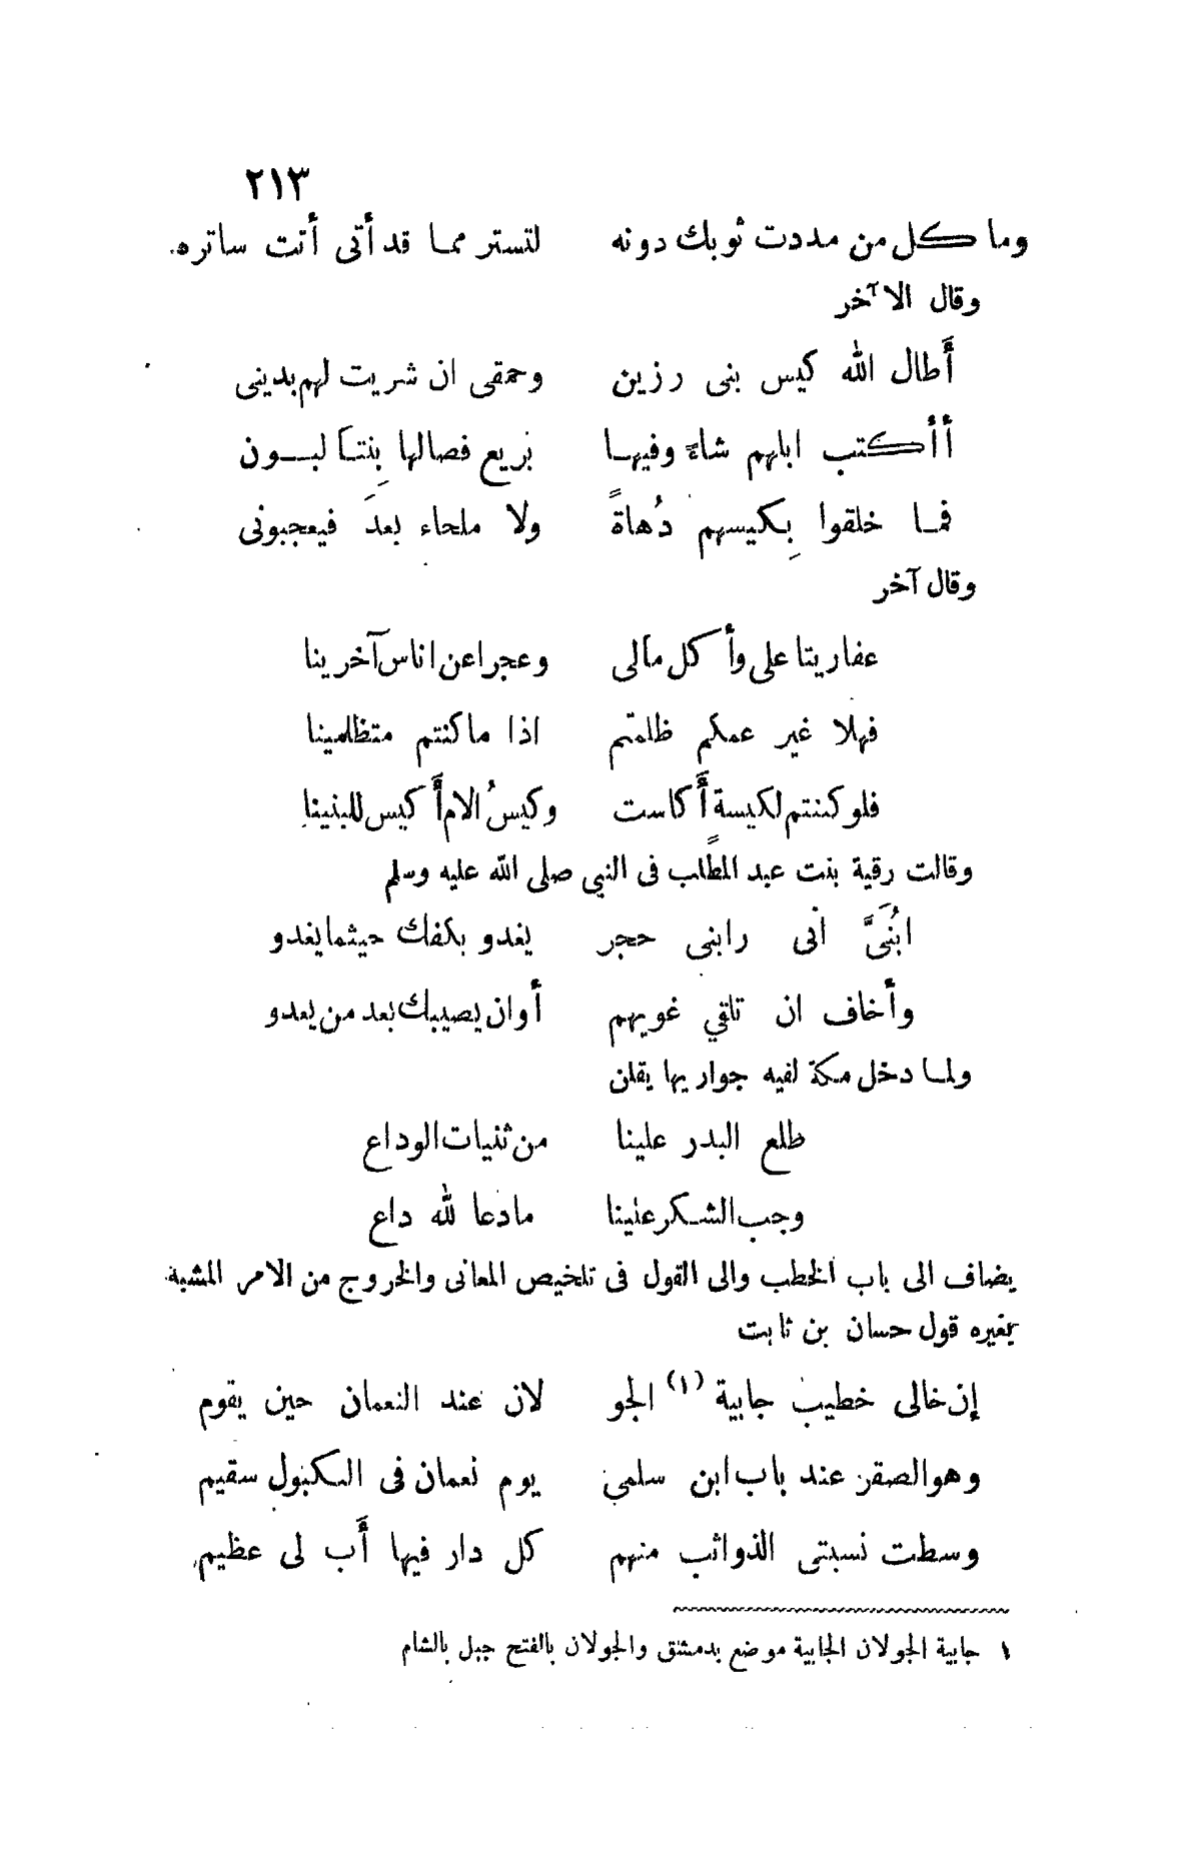 ٢١٣
وما كل من مددت ثوبك دونه لتستر مما قد أتى أنت ساتره
وقال الآخر
أَطال الله كيس بنى رزين وحمقى ان شريت لهم بدينى
أأكتب ابلهم شاءً وفيها بريع فصالها بِنتا لبون
فما خلقوا بِكيسهم دُهاةً ولا ملحاء بعدَ فيعجبونى
وقال آخر
عفاريتا على وأكل مالى وعجزا عن اناس آخرينا
فهلا غير عمكم ظلمتم اذا ما كنتم متظلمينا
فلو كنتم لكيسة أَكاست وكيسُ الام أَكيس للبنينا
وقالت رقية بنت عبد المطَّلب فى النبي صلى الله عليه وسلم
ابُنَىَّ انى رابنى حجر يغدو بكفك حيثما يغدو
وأخاف ان تلقي غويهم أوان يصيبك بعد من يعدو
ولما دخل مكة لقيه جواريها يقلن
طلع البدر علينا من ثنيات الوداع
وجب الشكر علينا مادعا لله داع
يضاف الى باب الخطب والى القول فى تلخيص المعانى والخروج من الامر المشبه
بغيره قول حسان بن ثابت
إن خالى خطيب جابية (١) الجو لان عند النعمان حين يقوم
وهو الصقر عند باب ابن سلمى يوم نعمان فى الكبول سقيم
وسطت نسبتى الذوائب منهم كل دار فيها أَب لى عظيم
١ جابية الجولان الجابية موضع بدمشق والجولان بالفتح جبل بالشام